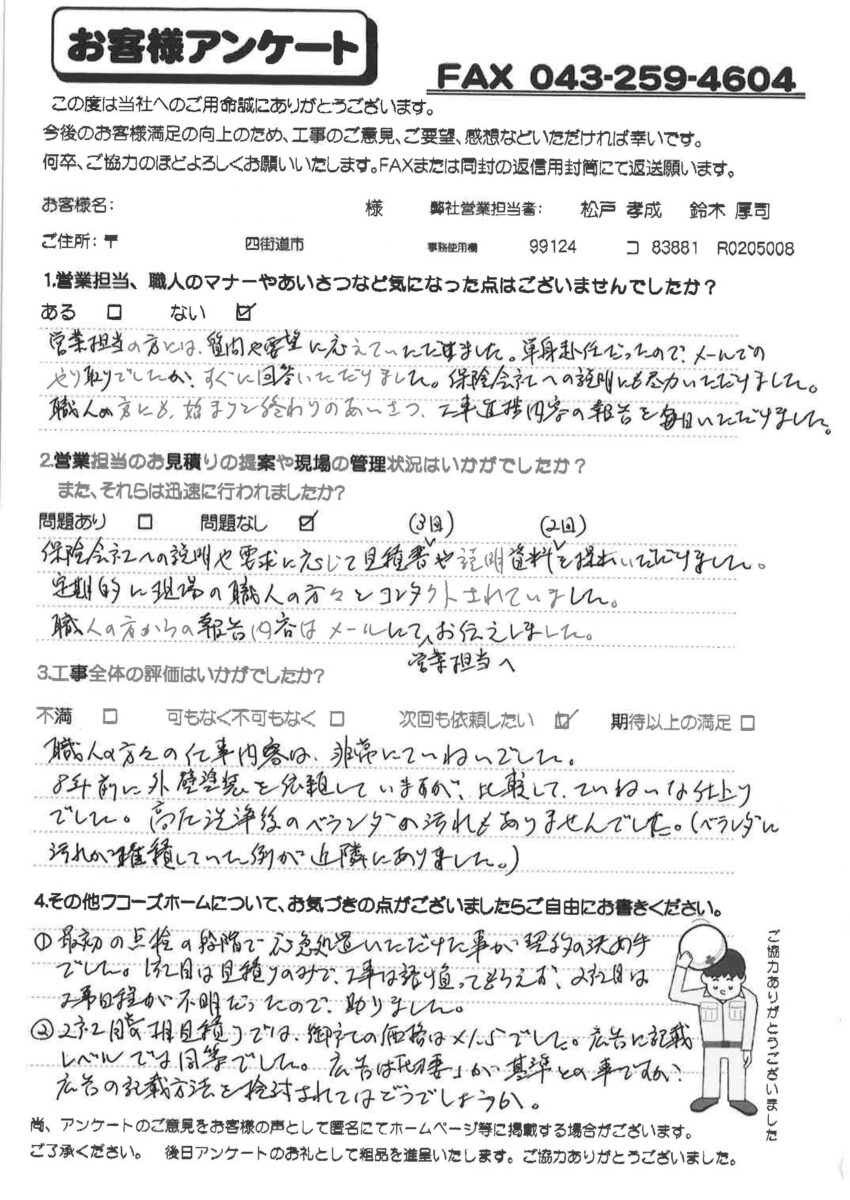 お客様アンケート
FAX 043-259-4604
この度は当社へのご用命誠にありがとうございます。
今後のお客様満足の向上のため、工事のご意見、ご要望、感想などいただければ幸いです。
何卒、ご協力のほどよろしくお願いいたします。FAXまたは同封の返信用封筒にて返送願います。
お客様名: 様 弊社営業担当者: 松戸 孝成 鈴木 厚司
ご住所:〒 四街道市 事務使用欄 99124 コ 83881 R0205008
1.営業担当、職人のマナーやあいさつなど気になった点はございませんでしたか?
ある □ ない ☑
営業担当の方とは、質問や要望に応えていただけました。単身赴任だったので、メールでの
やり取りでしたが、すぐに回答いただけました。保険会社への説明にも尽力いただけました。
職人の方にも、始まりと終わりのあいさつ、工事進捗内容の報告を毎日いただけました。
2.営業担当のお見積りの提案や現場の管理状況はいかがでしたか?
また、それらは迅速に行われましたか?
問題あり □ 問題なし ☑ (3回) (2回)
保険会社への説明や要求に応じて見積書や説明資料を提出いただけました。
定期的に現場の職人の方々とコンタクトされていました。
職人の方からの報告内容はメールにて、お伝えしました。
営業担当へ
3.工事全体の評価はいかがでしたか?
不満 □ 可もなく不可もなく □ 次回も依頼したい ☑ 期待以上の満足 □
職人の方々の仕事内容は、非常にていねいでした。
8年前に外壁塗装を依頼していますが、比較して、ていねいな仕上り
でした。高圧洗浄後のベランダの汚れもありませんでした。(ベランダに
汚れが堆積していた例が近隣にありました。)
4.その他ワコーズホームについて、お気づきの点がございましたらご自由にお書きください。
① 最初の点検の段階で応急処置いただけた事が契約の決め手
でした。1社目は見積りのみで、工事は請け負ってもらえず、2社目は
工事日程が不明だったので、助りました。
② 2社目の相見積りでは、御社の価格は×1.5でした。広告に記載
レベルでは同等でした。広告は「切妻」が基準との事ですが、
広告の記載方法を検討されてはどうでしょうか。
ご協力ありがとうございました
尚、アンケートのご意見をお客様の声として匿名にてホームページ等に掲載する場合がございます。
ご了承ください。 後日アンケートのお礼として粗品を進呈いたします。ご協力ありがとうございました。